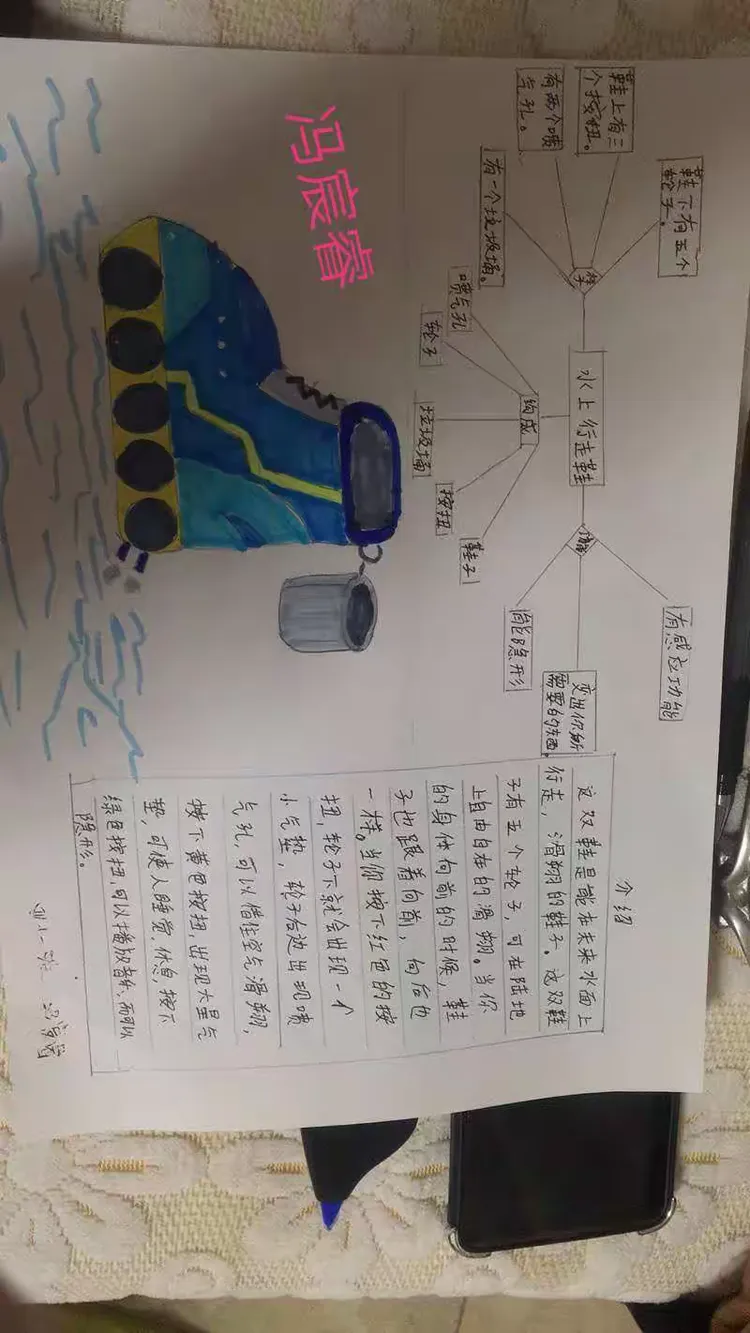 冯宸睿
水上行走鞋
样子
鞋下有五个
轮子。
鞋上有三
个按钮。
有两个喷
气孔。
有一个垃圾桶。
构成
喷气孔
轮子
垃圾桶
按扭
鞋子
功能
有感应功能
变出你所
需要的东西。
能隐形
介绍
这双鞋是能在未来水面上
行走，滑翔的鞋子。这双鞋
子有五个轮子，可在陆地
上自由自在的滑翔。当你
的身体向前的时候，鞋
子也跟着向前，向后也
一样。当你按下红色的按
扭，轮子下就会出现一个
小气垫，轮子右边出现喷
气孔，可以借住空气滑翔，
按下黄色按扭出现大号气
垫，可使人睡觉，休息，按下
绿色按扭，可以播放音乐，而可以
隐形。